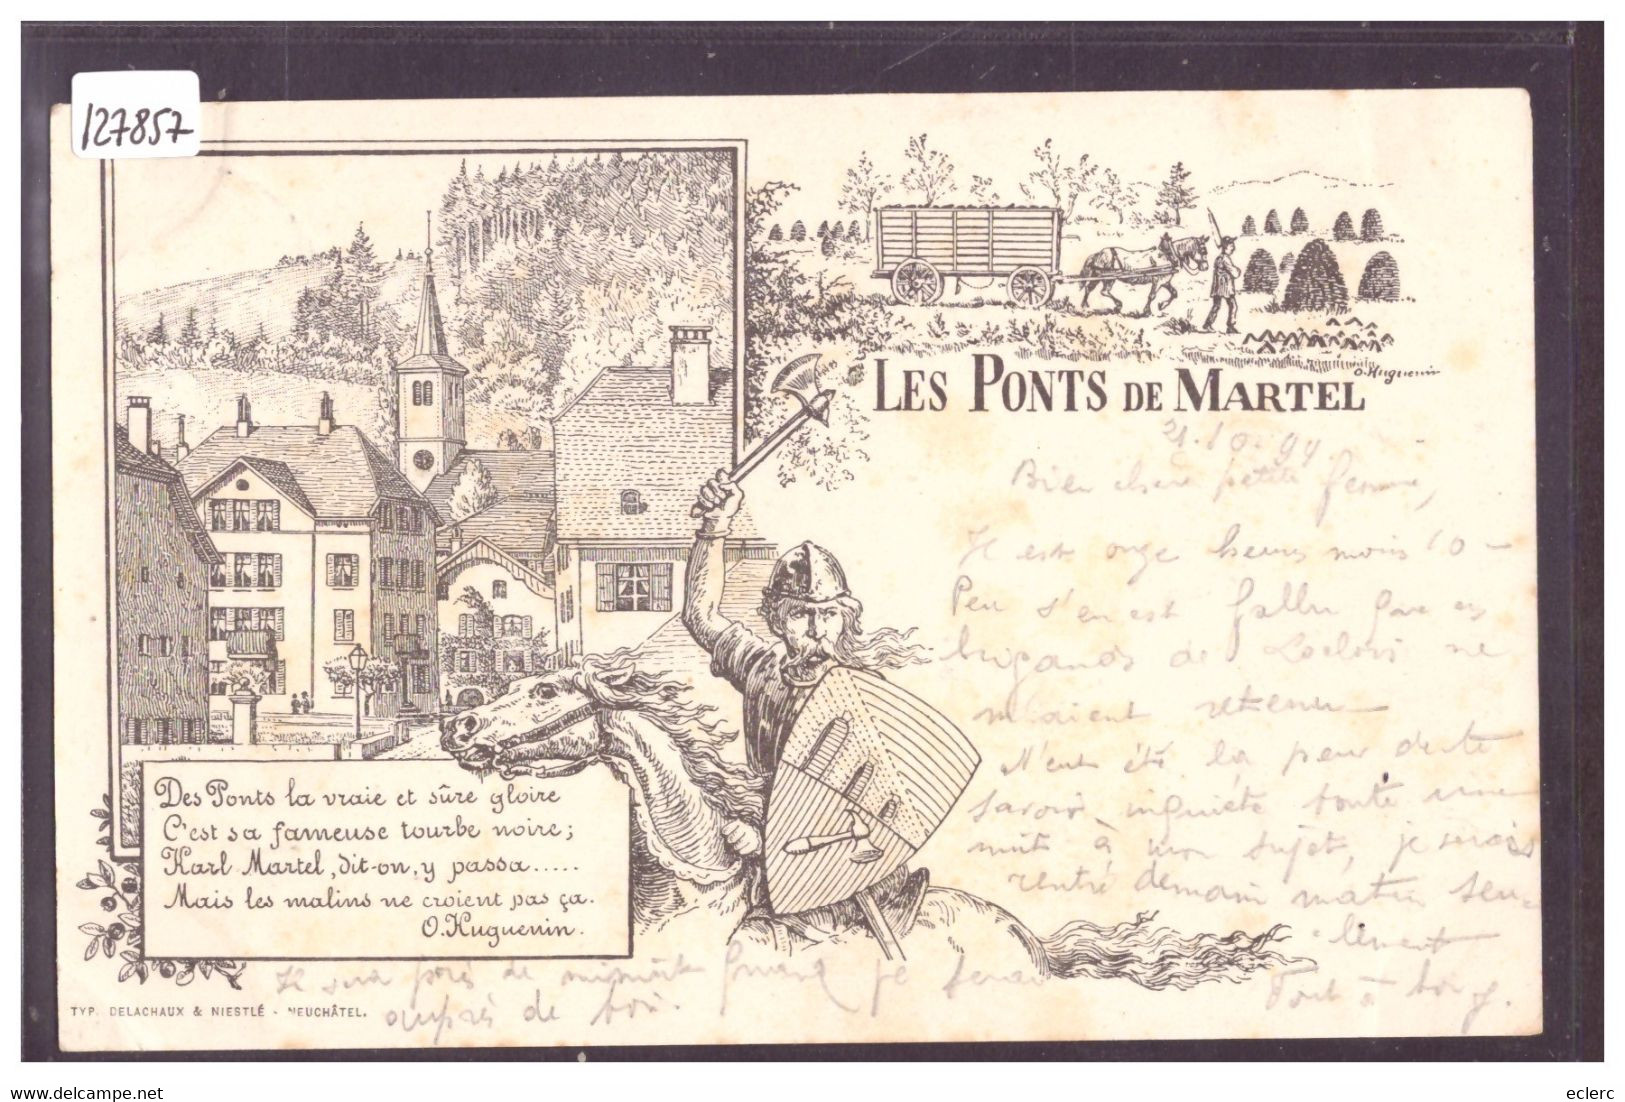 127857
O. Huguenin
LES PONTS DE MARTEL
21.10.99
Bien chère petite femme,
Il est onze heures moins 10 –
Peu s'en est fallu que ces
brigands de Loclois ne
m'aient retenu –
N'eut été la peur de te
savoir inquiète toute une
nuit à mon sujet, je serais
rentré demain matin seu-
lement
Tout à toi J.
Il sera près de minuit quand je serai
auprès de toi.
Des Ponts la vraie et sûre gloire
C'est sa fameuse tourbe noire;
Karl Martel, dit-on, y passa.....
Mais les malins ne croient pas ça.
O. Huguenin.
TYP. DELACHAUX & NIESTLÉ - NEUCHÂTEL.
eclerc